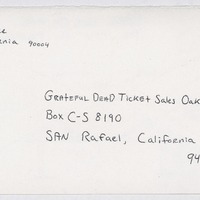 90004
GRATEFUL DEAD TICKET SALES OAK
BOX C-S 8190
SAN Rafael, California
94